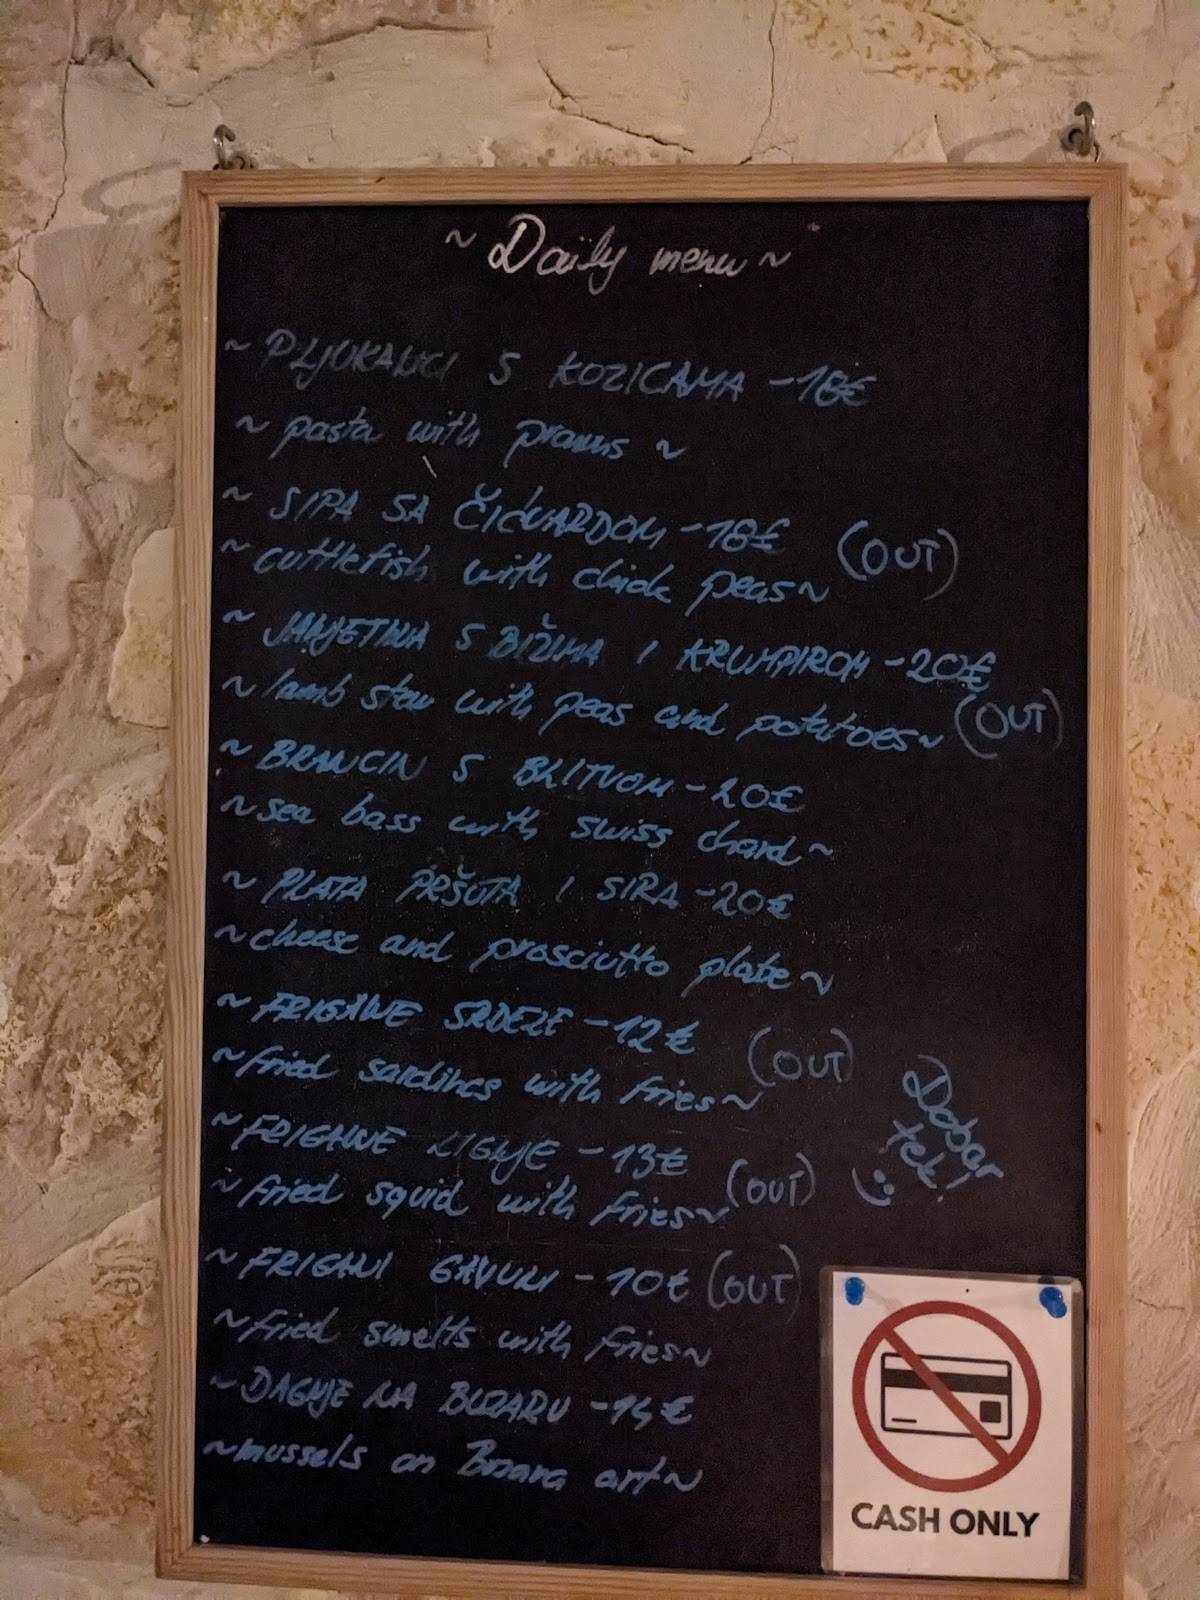 ~ Daily menu ~
~ PLJUKANCI S KOZICAMA - 18€
~ pasta with prawns ~
~ SIPA SA ČIĆVARDOM - 18€ (OUT)
~ cuttlefish with chick peas ~
~ JANJETINA S BIŽIMA I KRUMPIROM - 20€
~ lamb stew with peas and potatoes ~ (OUT)
~ BRANCIN S BLITVOM - 20€
~ sea bass with swiss chard ~
~ PLATA PRŠUTA I SIRA - 20€
~ cheese and prosciutto plate ~
~ FRIGANE SRDELE - 12€
~ fried sardines with fries ~ (OUT)
~ FRIGANE LIGNJE - 13€
~ fried squid with fries ~ (OUT)
~ FRIGANI GAVUNI - 10€ (OUT)
~ fried smelts with fries ~
~ DAGNJE NA BUZARU - 14€
~ mussels on Buzara art ~
Dobar
tek!
CASH ONLY